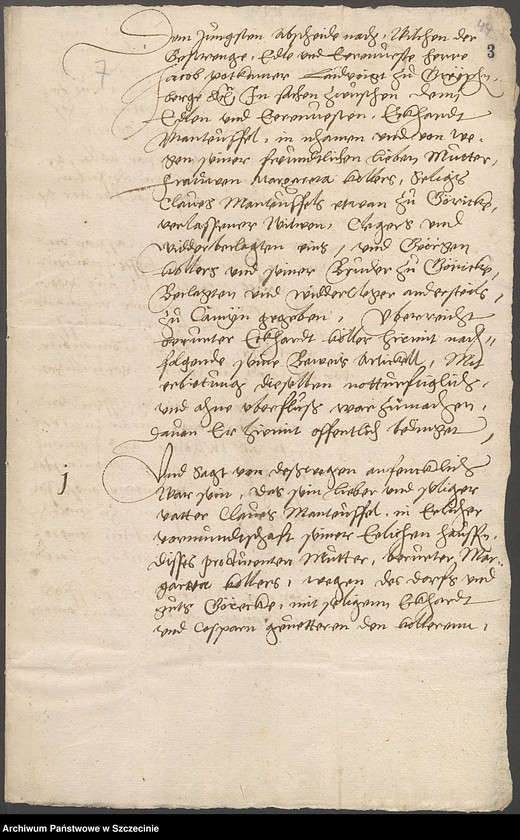 3
7
Dem Jungsten Abscheide nach, Wilchen der
Gestrenge, Edle und Erenueste herre
Jacob Landvoigt zu
berge In sachen zwuschen dem
Edlen und Erenuesten, Eckhardt
Manteuffel, in nhamen und von we-
gen seiner freundtlichen lieben Mutter,
Frauwen Margareta Kollers, Seligs
Clawes Manteuffels etwan zu Göricke,
verlassener Witwen, Clegers und
widderbeclagten eins, und Görgen
Kollers und seiner Bruder zu Göricke,
Beclagten und widderkleger andersteils,
zu Camyn gegeben, Uberreicht
berurter Eckhardt hiemit nach,,
folgende seine Beweis Artickell, Mit
erbietung dieselben notturfftiglich,
und ohne uberfluß war zumachen,
dauon Er hiemit offentlich bedinget,
1
Und sagt von deßwegen anfencklich
War sein, das sein lieber und seliger
vatter Clawes Manteuffel, in Eelicher
vormundtschafft seiner Eelichen haussfr.
disses producenten Mutter, berurter Mar-
gareta Kollers, wegen des dorffs und
guts Görecke, mit seligem Eckhardt
und Casparn geuetteren den Kolleren,
Archiwum Państwowe w Szczecinie